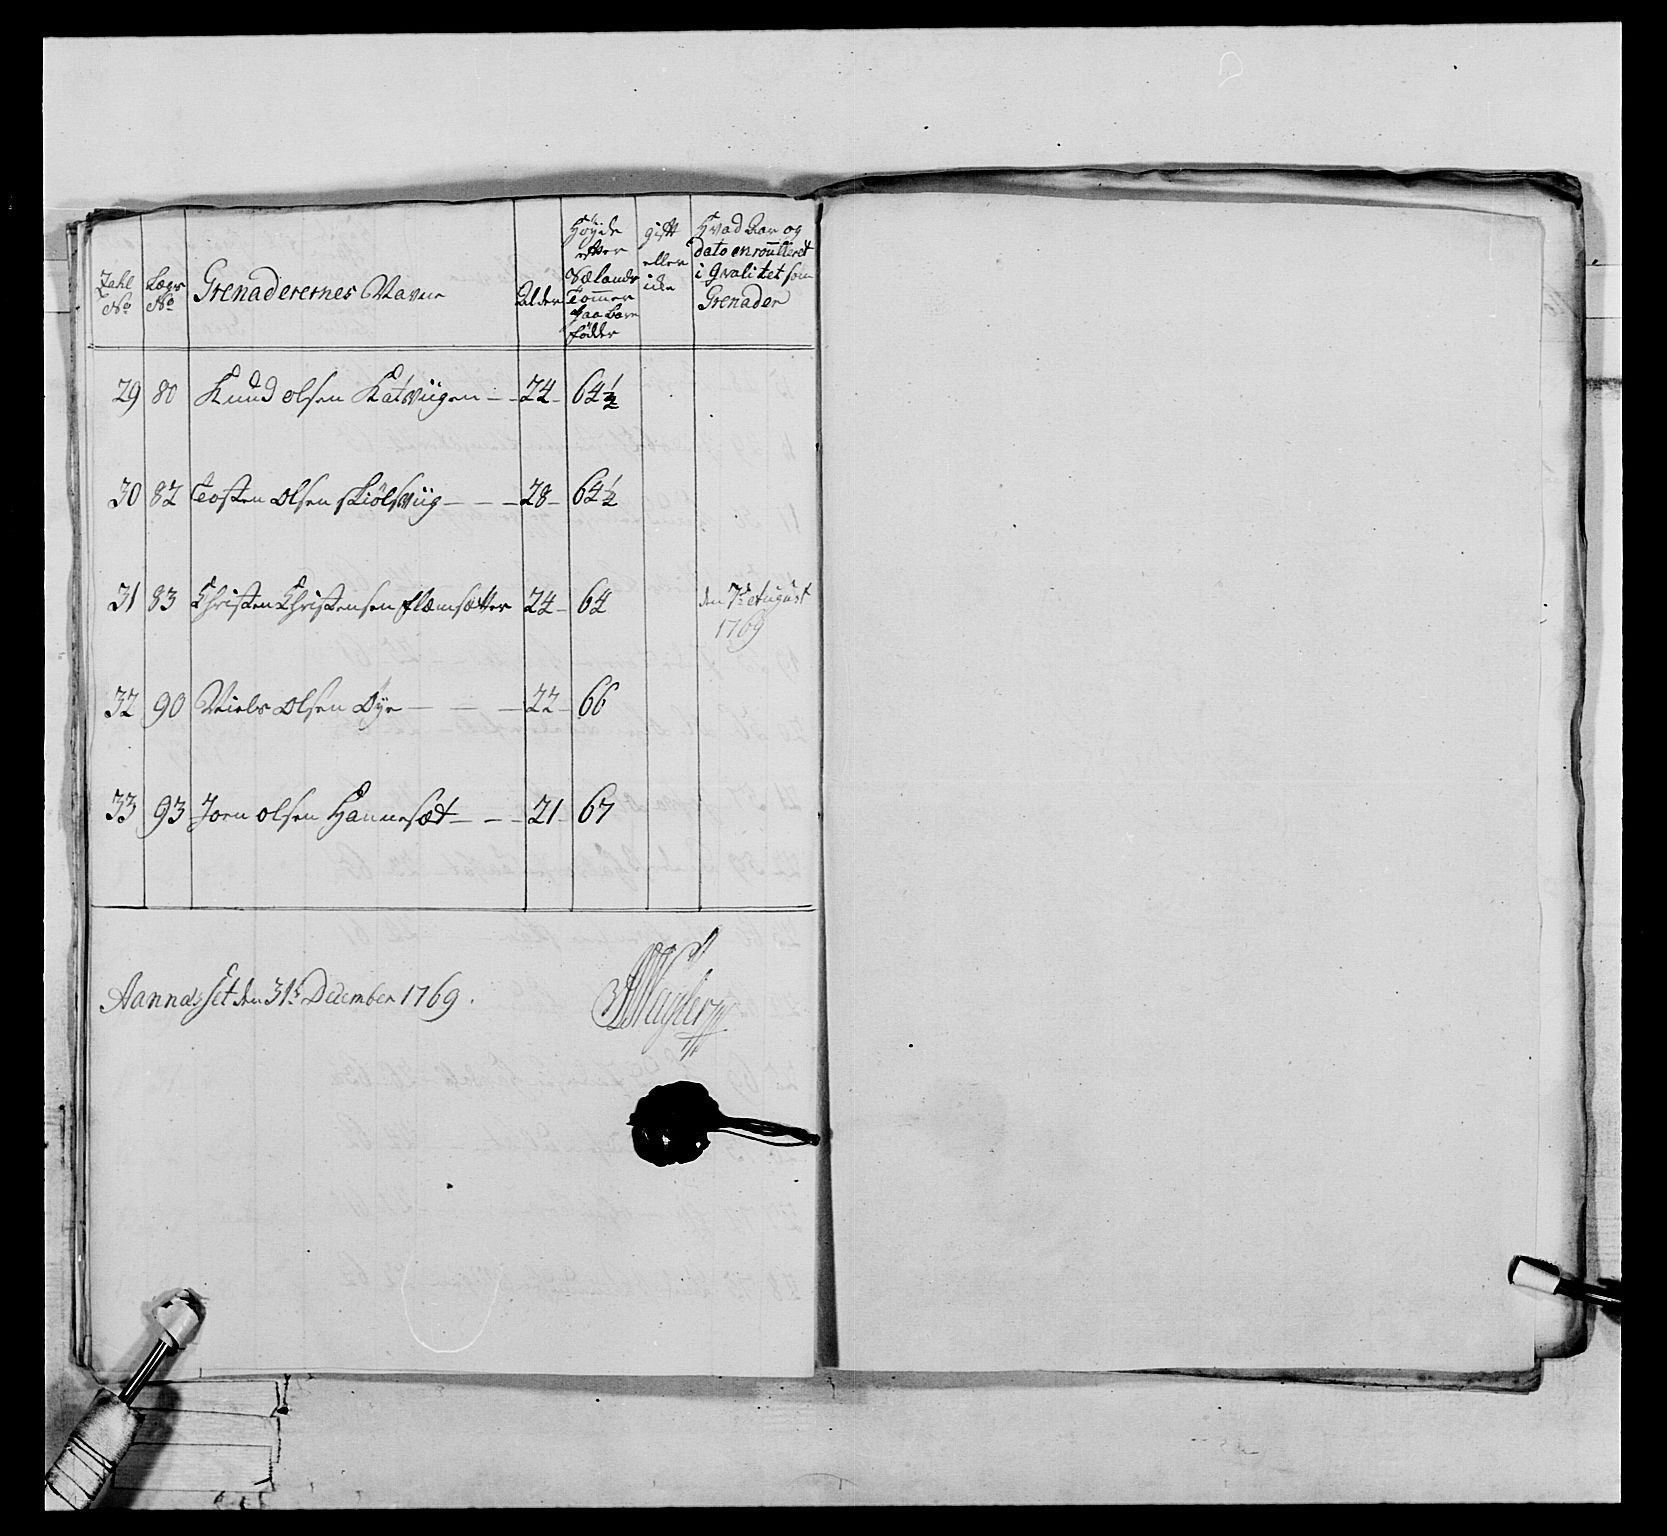 Zahl No
Lægs No
Grenaderernes Navne
Alder
Høyde efter Sælands Tommer paa bare fødder
gift eller icke
Hvad Aar og dato enroulleret i Qvalitet som Grenader
29 80 Knud olsen Katviigen - - 24 - 64 1/2
30 82 Tosten olsen skiölsviig - - - 28 - 64 1/2
31 83 Christen Christensen flæmsætter 24 - 64 den 7de August 1769
32 90 Niels olsen Øye - - - 22 - 66
33 93 Joen olsen Hannesæt - - - 21 - 67
Aannasset den 31te December 1769.